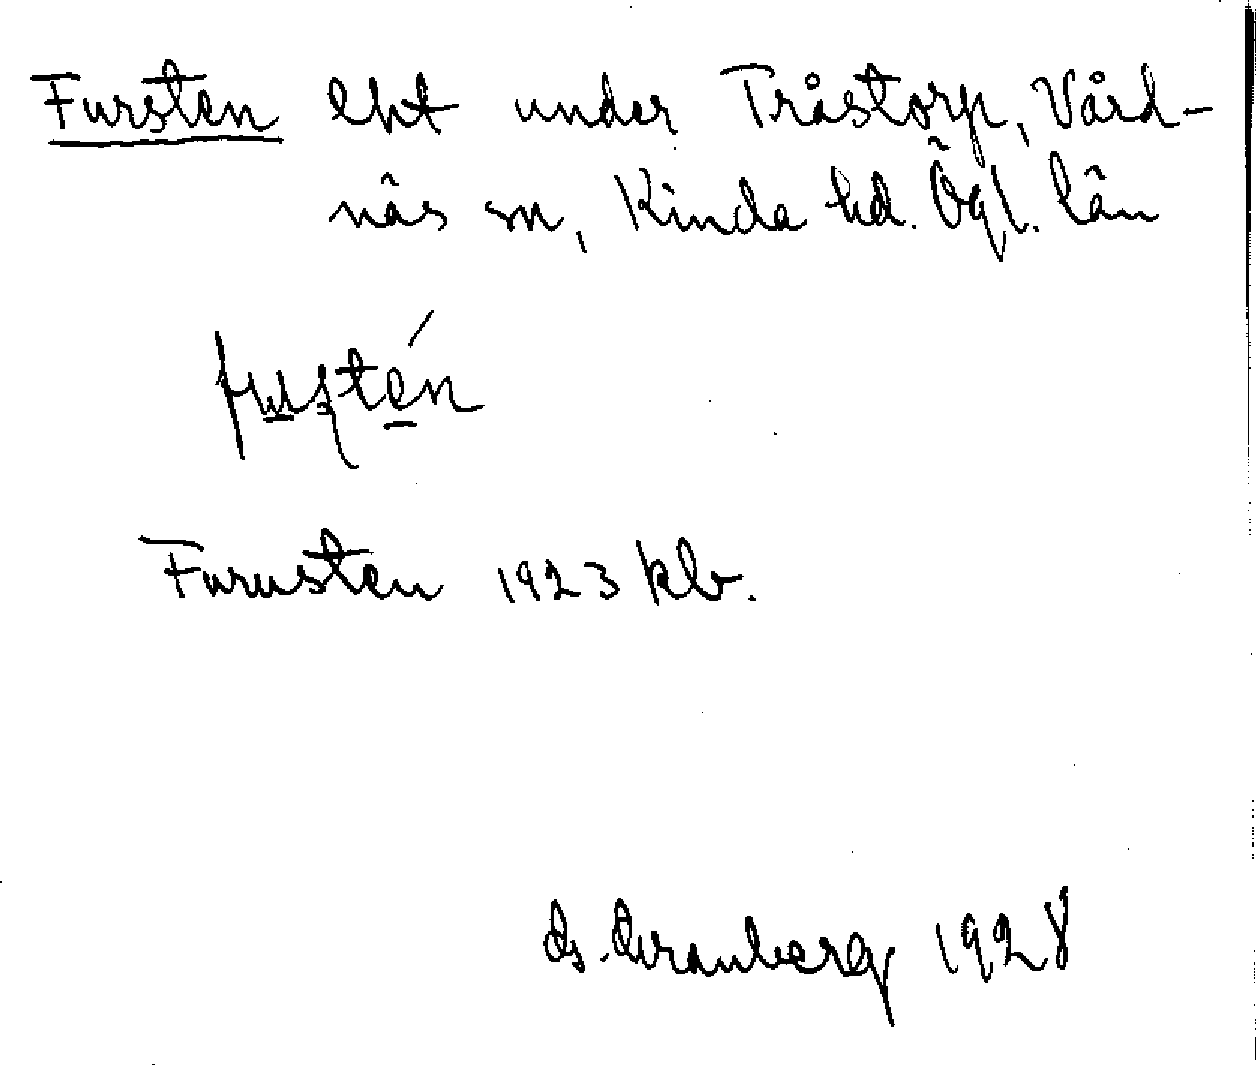 Fursten lht under Tråstorp, Vård-
näs sn, Kinda hd. Ögl. län
Furusten 1923 klb.
G. Granberg 1928